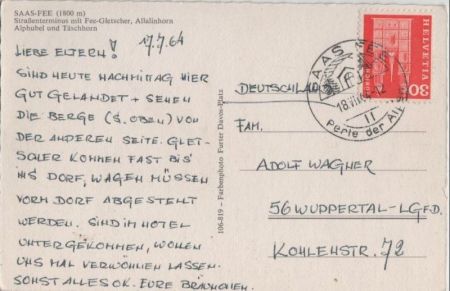 SAAS-FEE (1800 m)
Straßenterminus mit Fee-Gletscher, Allalinhorn
Alphubel und Täschhorn
17.7.64
LIEBE ELTERN!
SIND HEUTE NACHMITTAG HIER
GUT GELANDET + SEHEN
DIE BERGE (S. OBEN) VON
DER ANDEREN SEITE. GLET-
SCHER KOMMEN FAST BIS
INS DORF, WAGEN MÜSSEN
VORM DORF ABGESTELLT
WERDEN. SIND IM HOTEL
UNTERGEKOMMEN, WOLLEN
UNS MAL VERWÖHNEN LASSEN.
SONST ALLES OK. EURE
106-819 - Farbenphoto Furter Davos-Platz
DEUTSCHLAND
FAM.
ADOLF WAGNER
56 WUPPERTAL-LGFD.
KOHLENSTR. 72
SAAS-FEE
18.VII.
Perle der Alpen
HELVETIA
30